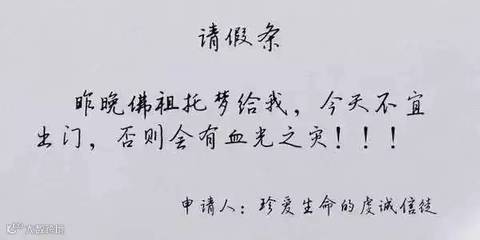 请假条
昨晚佛祖托梦给我，今天不宜
出门，否则会有血光之灾！！！
申请人：珍爱生命的虔诚信徒
大数跨境